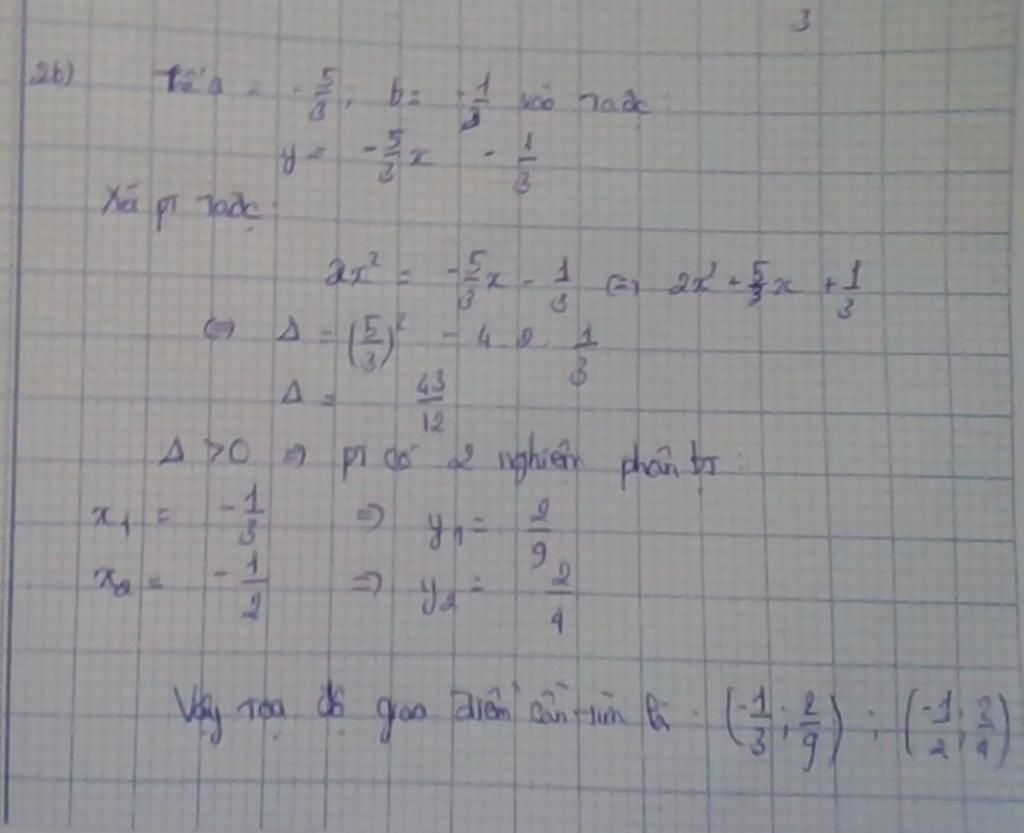 3
2b) Từ a = -5/3; b = -1/3 vào ta đc
y = -5/3 x - 1/3
Xét pt ta đc
2x² = -5/3 x - 1/3 (=) 2x² + 5/3 x + 1/3
(=) Δ = (5/3)² - 4.2. 1/3
Δ = 43/12
Δ > 0 => pt có 2 nghiệm phân bt
x₁ = -1/3 => y₁ = 2/9
x₂ = -1/2 => y₂ = 2/4
Vậy tọa độ giao điểm cần tìm là (-1/3; 2/9); (-1/2; 2/4)